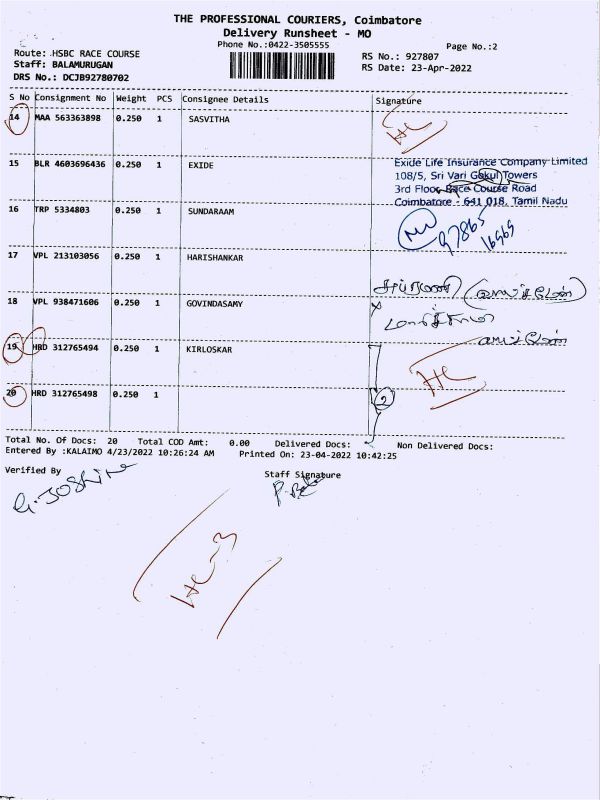 THE PROFESSIONAL COURIERS, Coimbatore
Delivery Runsheet - MO
Phone No.:0422-3505555
Page No.:2
Route: HSBC RACE COURSE
RS No.: 927807
Staff: BALAMURUGAN
RS Date: 23-Apr-2022
DRS No.: DCJB92780702
S No Consignment No Weight PCS Consignee Details Signature
14 MAA 563363898 0.250 1 SASVITHA
HC
15 BLR 4603696436 0.250 1 EXIDE
Exide Life Insurance Company Limited
108/5, Sri Vari Gokul Towers
3rd Floor, Race Course Road
Coimbatore - 641 018, Tamil Nadu
16 TRP 5334803 0.250 1 SUNDARAAM
97865
16969
17 VPL 213103056 0.250 1 HARISHANKAR
18 VPL 938471606 0.250 1 GOVINDASAMY
19 HRD 312765494 0.250 1 KIRLOSKAR
HC
20 HRD 312765498 0.250 1
2
Total No. Of Docs: 20 Total COD Amt: 0.00 Delivered Docs: Non Delivered Docs:
Entered By :KALAIMO 4/23/2022 10:26:24 AM Printed On: 23-04-2022 10:42:25
Verified By Staff Signature
G. JOShine
HC-3